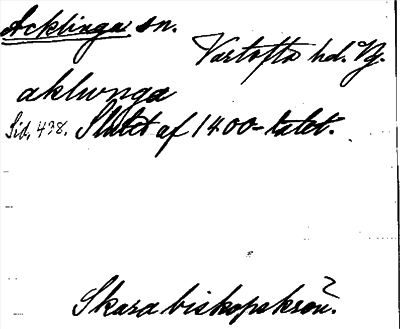 Acklinga sn.
Vartofta hd. Vg.
aklunga
Sid. 438. Slutet af 1400-talet.
Skara biskopskrön.
2